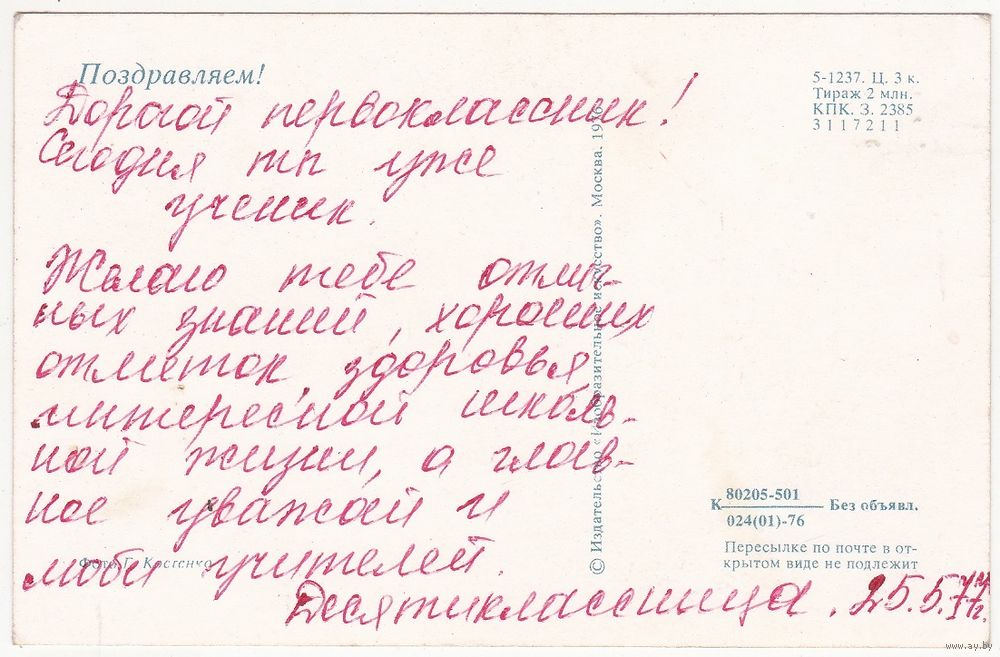 Поздравляем!
Дорогой первоклассник!
Сегодня ты уже
ученик.
Желаю тебе отлич-
ных знаний, хороших
отметок, здоровья
интересной школь-
ной жизни, а глав-
ное уважай и
люби учителей.
Десятиклассница. 25.5.77г.
Фото Г. Костенко
© Издательство «Изобразительное искусство». Москва. 1976
5-1237. Ц. 3 к.
Тираж 2 млн.
КПК. З. 2385
3117211
К 80205-501
024(01)-76 Без объявл.
Пересылке по почте в от-
крытом виде не подлежит
www.ay.by